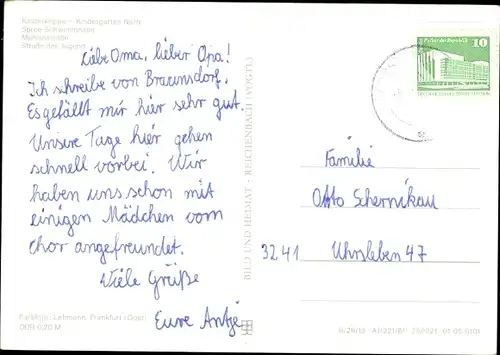 Kinderkrippe - Kindergarten Nord
Spree-Schwimmhalle
Straße der Jugend
Liebe Oma, lieber Opa!
Ich schreibe von Braunsdorf.
Es gefällt mir hier sehr gut.
Unsere Tage hier gehen
schnell vorbei. Wir
haben uns schon mit
einigen Mädchen vom
chor angefreundet.
Viele Grüße
Eure Antje
Lehmann, Frankfurt (Oder)
DDR 0,20 M
BILD UND HEIMAT · REICHENBACH (VOGTL)
10
Familie
Otto Schernikau
3241 Uhrsleben 47